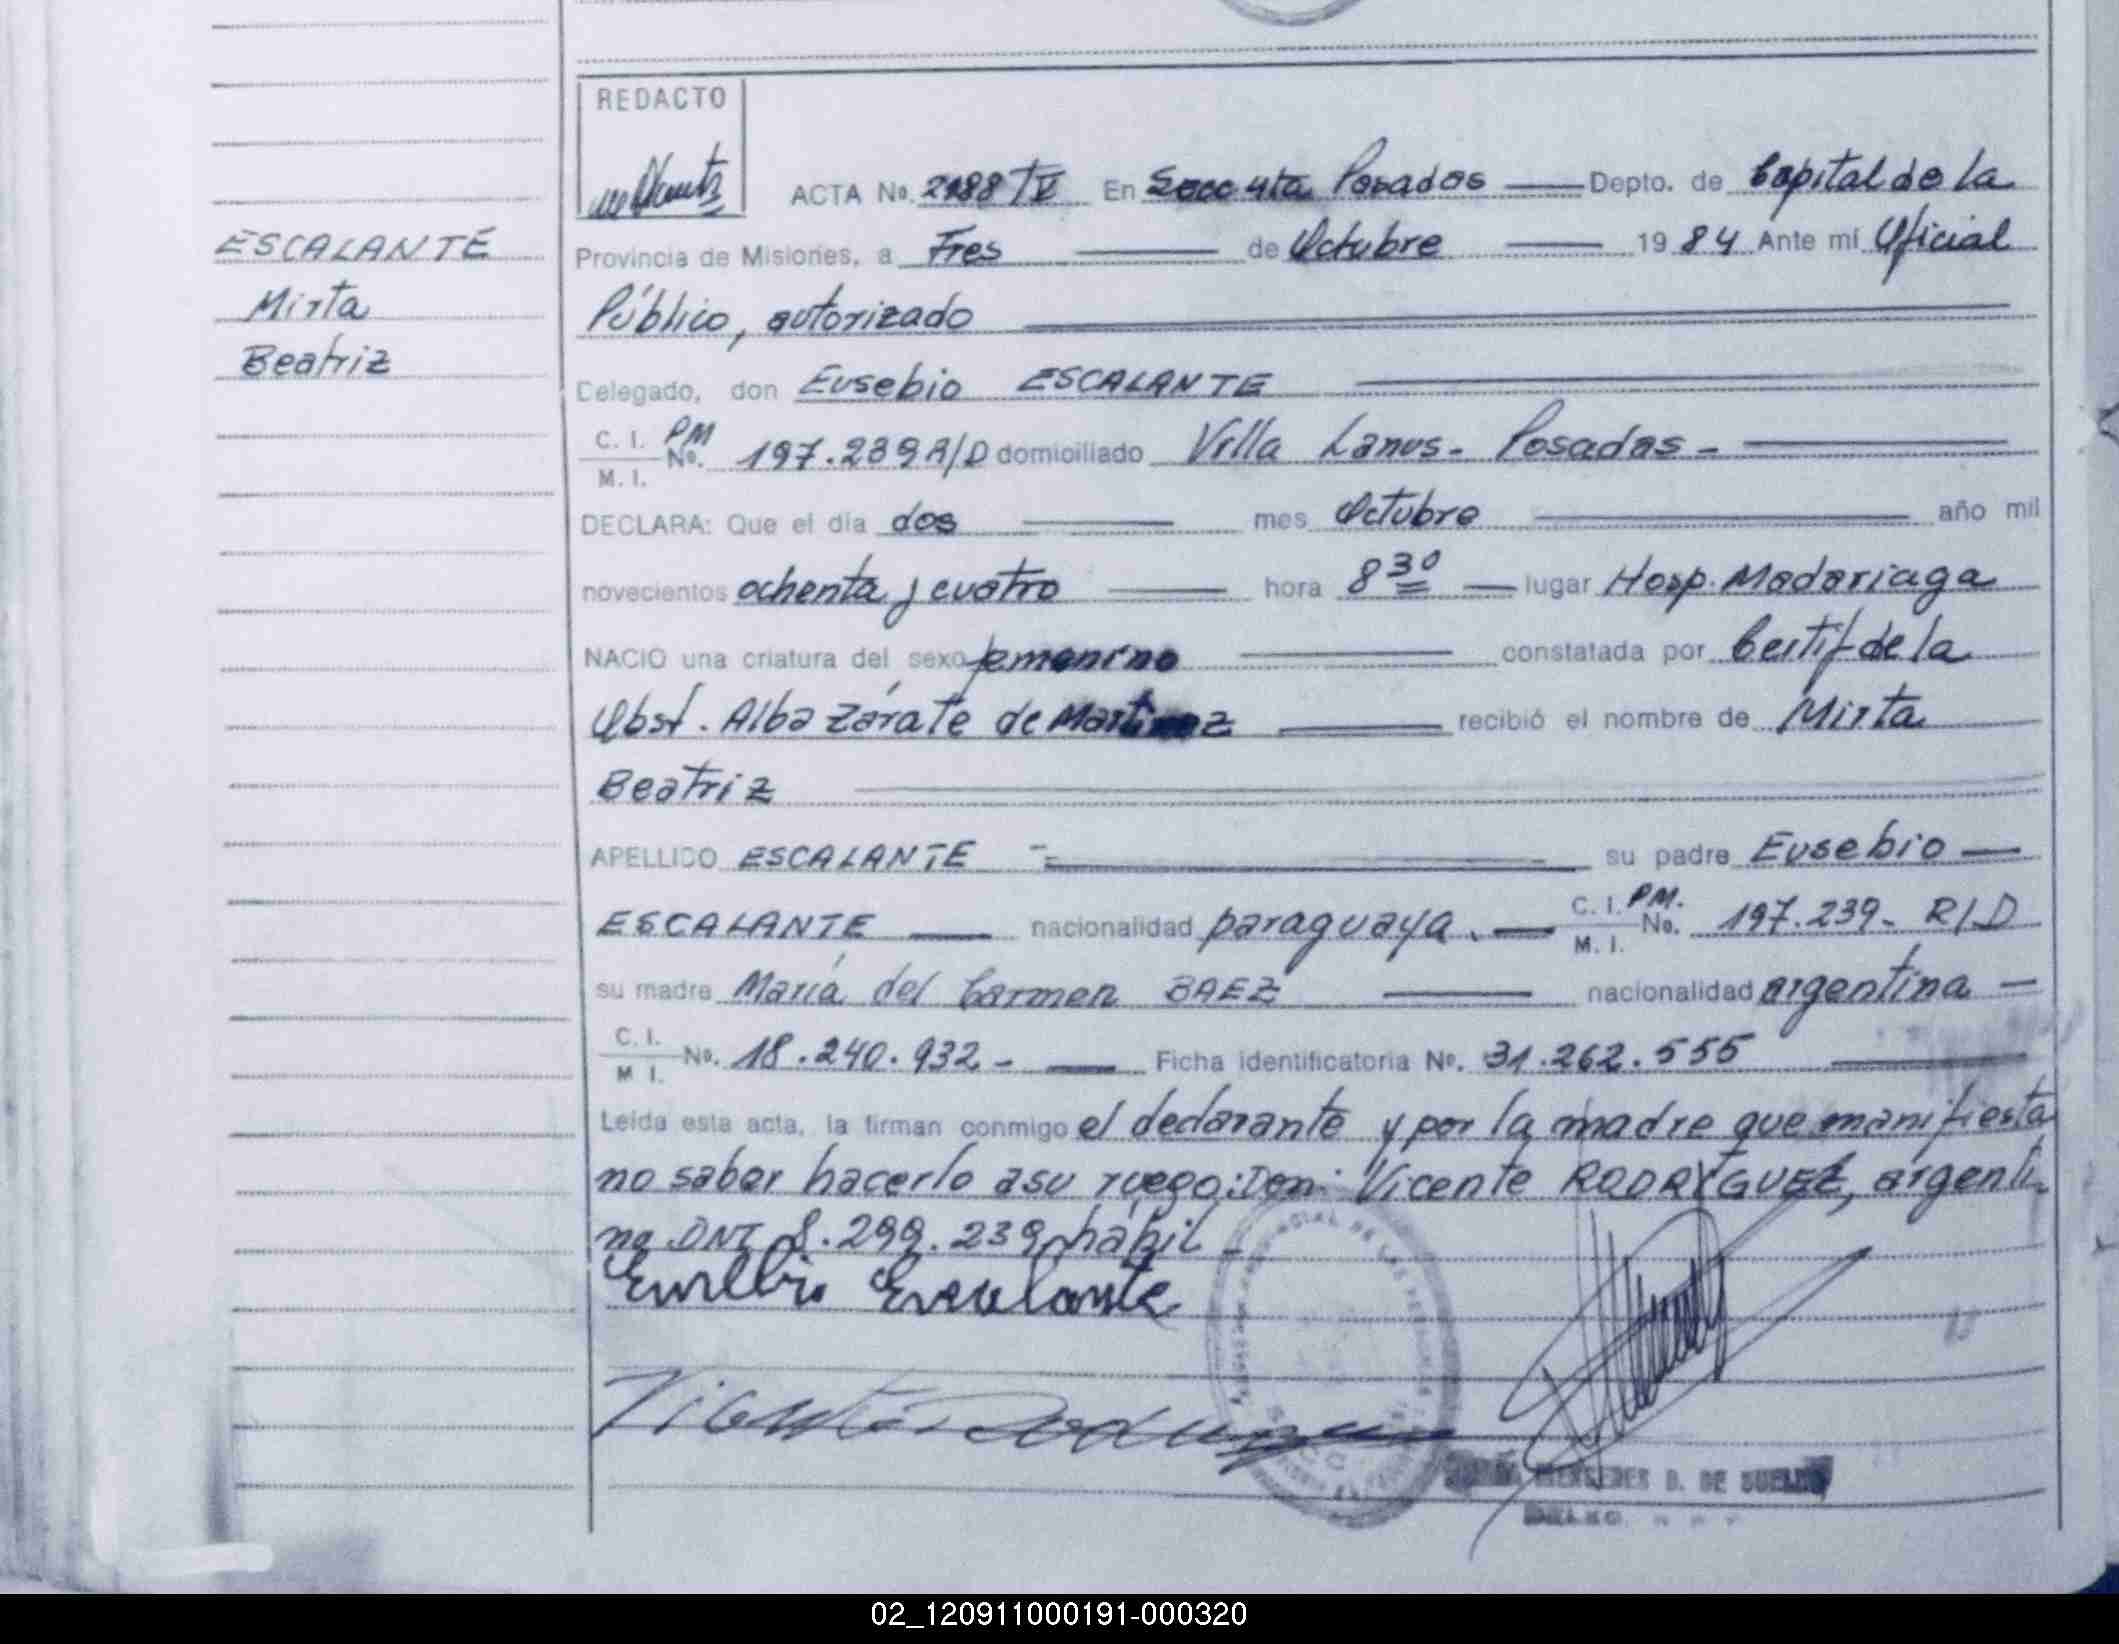 REDACTO
ACTA No. 2188 TV En Secc 4ta Posadas Depto. de Capital de la
ESCALANTE
Mirta
Beatriz
Provincia de Misiones, a Tres de Octubre 1984 Ante mí Oficial
Público, autorizado
Delegado, don Eusebio ESCALANTE
C. I. PM
M. I. No. 197.239 R/D domiciliado Villa Lanus - Posadas -
DECLARA: Que el día dos mes Octubre año mil
novecientos ochenta y cuatro hora 8 30 lugar Hosp. Madariaga
NACIO una criatura del sexo femenino constatada por Certif de la
Obst. Alba Zárate de Martinez recibió el nombre de Mirta
Beatriz
APELLIDO ESCALANTE su padre Eusebio
ESCALANTE nacionalidad paraguaya. C. I. PM. M. I. No. 197.239 - R/D
su madre María del Carmen BAEZ nacionalidad argentina
C. I. M. I. No. 18.240.932 - Ficha identificatoria No. 31.262.555
Leída esta acta, la firman conmigo el declarante y por la madre que manifiesta
no saber hacerlo a su ruego: Don: Vicente RODRIGUEZ, argenti
no DNI 8.299.239 hábil -
Escalante
Vicente
MERCEDES D. DE
02_120911000191-000320